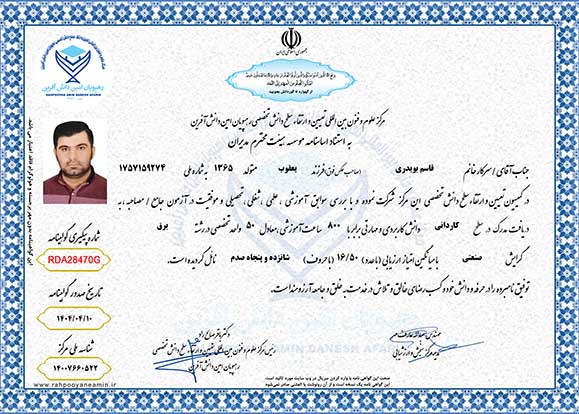 جمهوری اسلامی ایران
از گهواره تا گور دانش بجویید
رهپویان امین دانش آفرین
RAHPOOYANE AMIN DANESH AFARIN
مرکز علوم و فنون بین المللی تعیین و ارتقاء سطح دانش تخصصی رهپویان امین دانش آفرین
به استناد اساسنامه موسسه، هیئت محترم مدیران
جناب آقای / سرکار خانم قاسم بویدری (صاحب عکس فوق) فرزند یعقوب متولد ۱۳۶۵ به شماره ملی ۱۷۵۷۱۵۹۲۷۴
در کمیسیون تعیین و ارتقاء سطح دانش تخصصی این مرکز شرکت نموده و با بررسی سوابق آموزشی ، علمی ، شغلی ، تحصیلی و موفقیت در آزمون جامع / مصاحبه ، به
دریافت مدرک در سطح کاردانی دانش کاربردی و مهارتی برابر با ۸۰۰ ساعت آموزشی معادل ۵۰ واحد تخصصی در رشته برق
گرایش صنعتی با میانگین امتیاز ارزیابی (با عدد) ۱۶/۵۰ (با حروف) شانزده و پنجاه صدم نائل گردیده است.
توفیق نامبرده را در حرفه و دانش خود و کسب رضای خالق و تلاش در خدمت به خلق و جامعه آرزومندیم.
شماره پیگیری گواهینامه
RDA28470G
تاریخ صدور گواهینامه
۱۴۰۴/۰۴/۱۰
شناسه ملی مرکز
۱۴۰۰۷۶۶۰۵۲۲
www.rahpooyaneamin.ir
رئیس مرکز علوم و فنون بین المللی تعیین و ارتقاء سطح دانش تخصصی
رهپویان امین دانش آفرین
AMIN DANESH AFARIN